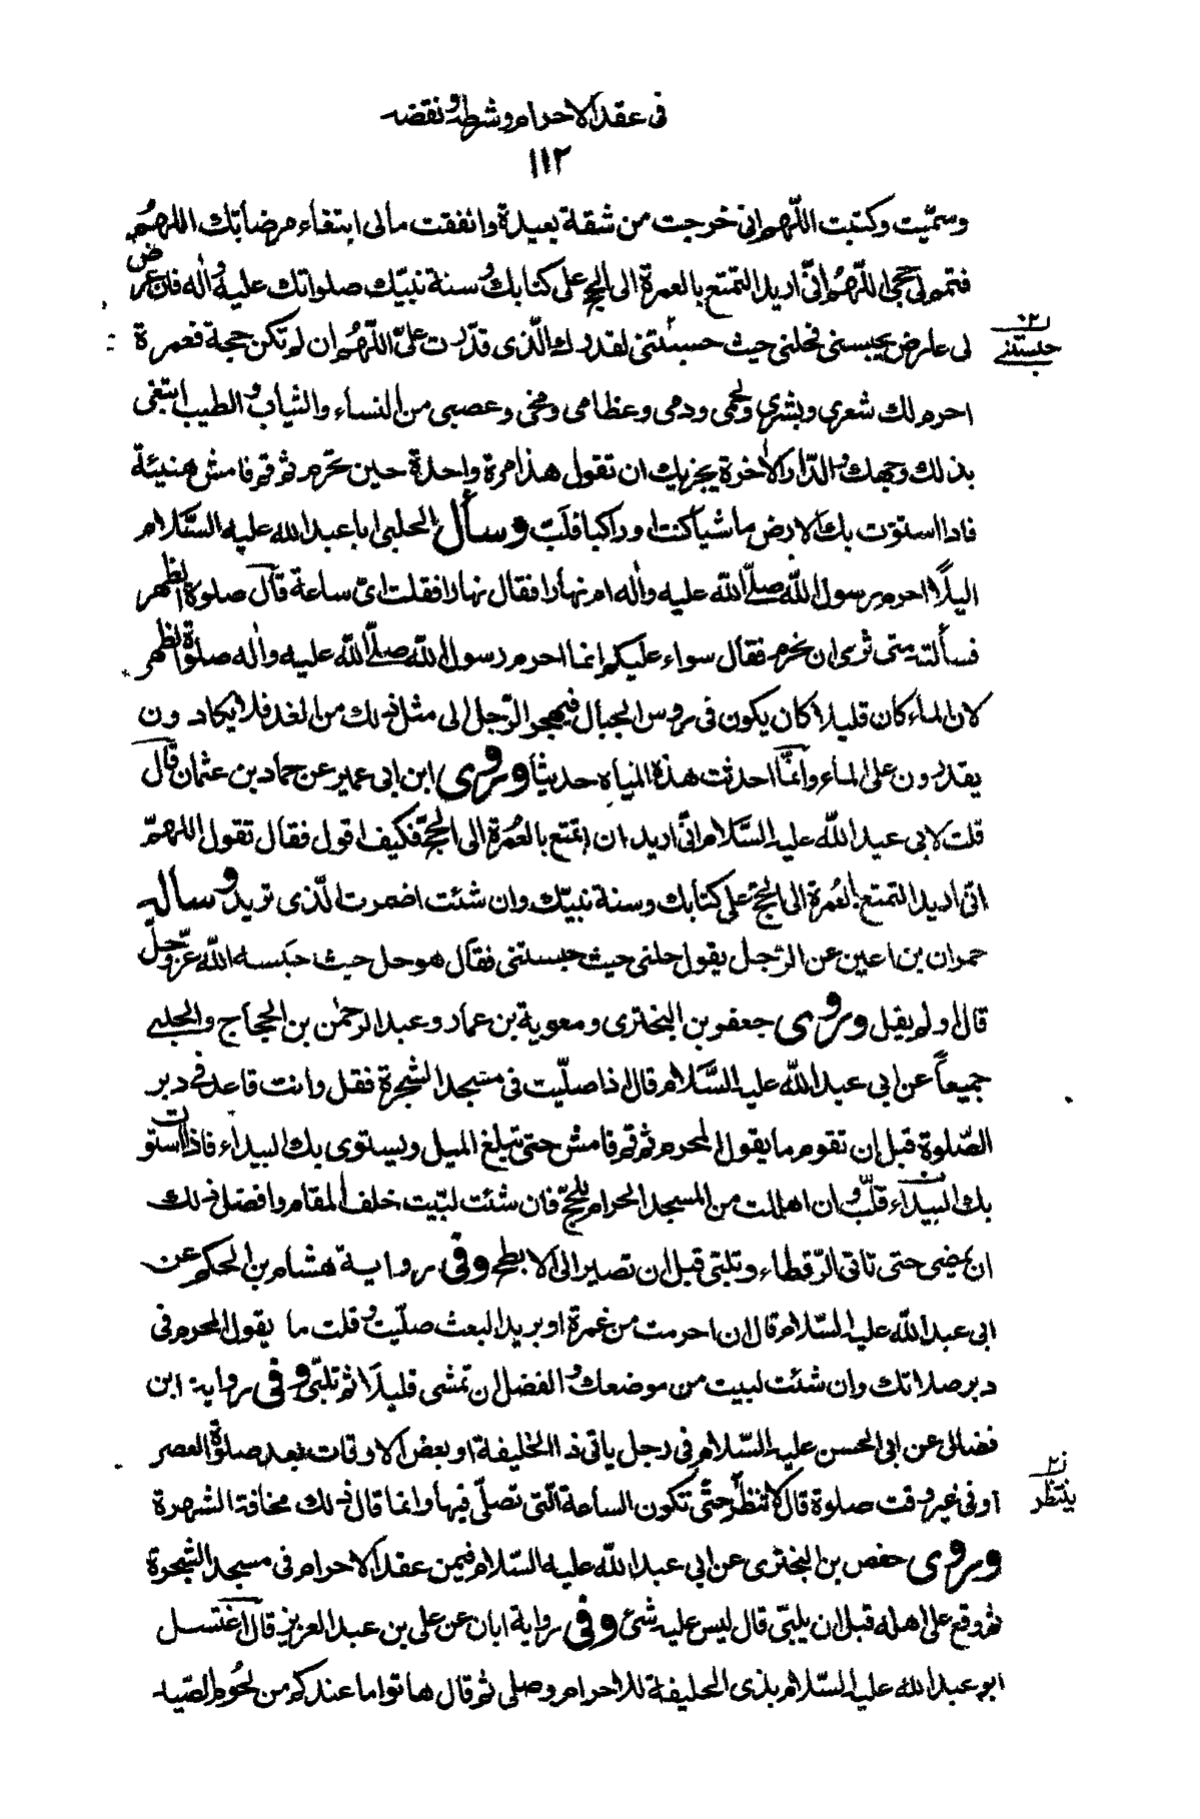 في عقد الاحرام وشرطه ونقضه
١١٢
وسمّيت وكتبت اللّهم اني خرجت من شقة بعيدة وانفقت مالي ابتغاء مرضاتك اللهمّ
فتمم لي حجي اللّهمّ انّي اريد التمتع بالعمرة الى الحج على كتابك وسنة نبيّك صلواتك عليه واله فان عرض
لي عارض يحبسني فحلني حيث حبستني لقدرك الّذي قدّرت عليّ اللّهمّ ان لم تكن حجة فعمرة
حبستنے
احرم لك شعري وبشري ولحمي ودمي وعظامي ومخي وعصبي من النساء والثياب والطيب ابتغي
بذلك وجهك والدّار الاخرة يجزيك ان تقول هذا مرة واحدة حين تحرم ثم قم فامش هنيئة
فاذا استوت بك الارض ماشيا كنت او راكبا فلبّ وسأل الحلبي ابا عبد الله عليه السّلام
اليلاً احرم رسول اللّه صلّى اللّه عليه واله ام نهارا فقال نهارا فقلت ايّ ساعة قال صلوة الظهر
فسألته متى ترى ان نحرم فقال سواء عليكم انما احرم رسول اللّه صلّى اللّه عليه واله صلوة الظهر
لان الماء كان قليلا كان يكون في رؤس الجبال فيهجر الرّجل الى مثل ذلك من الغد فلا يكادون
يقدرون على الماء وانّما احدثت هذه المياه حديثا وروى ابن ابي عمير عن حماد بن عثمان قال
قلت لابي عبد اللّه عليه السّلام انّي اريد ان اتمتع بالعمرة الى الحجّ فكيف اقول فقال تقول اللهمّ
انّي اريد التمتع بالعمرة الى الحج على كتابك وسنة نبيّك وان شئت اضمرت الّذي تريد وساله
حمران بن اعين عن الرّجل يقول حلني حيث حبستني فقال هو حل حيث حبسه اللّه عزّوجلّ
قال اولم يقل وروى جعفر بن البختري ومعوية بن عمار وعبد الرحمٰن بن الحجاج والحلبے
جميعاً عن ابي عبد اللّه عليه السّلام قال اذا صلّيت في مسجد الشجرة فقل وانت قاعد في دبر
الصّلوة قبل ان تقوم ما يقول المحرم ثم قم فامش حتى تبلغ الميل ويستوي بك البيداء فاذا استوت
بك البيداء فلبّ وان اهللت من المسجد الحرام للحجّ فان شئت لبّيت خلف المقام وافضل ذلك
ان تمضي حتى تاتي الرّقطاء وتلبّي قبل ان تصير الى الابطح وفي رواية هشام بن الحكم عن
ابي عبد اللّه عليه السّلام قال ان احرمت من غمرة او بريد البعث صلّيت وقلت ما يقول المحرم في
دبر صلاتك وان شئت لبيت من موضعك والفضل ان تمشي قليلا ثم تلبّي وفي رواية ابن
فضال عن ابي الحسن عليه السّلام في رجل ياتي ذا الخليفة او بعض الاوقات بعد صلوة العصر
او في غير وقت صلوة قال لا تنظر حتّى تكون الساعة الّتي تصلّى فيها وانما قال ذلك مخافة الشهرة
ينتظر
وروى حفص بن البختري عن ابي عبد اللّه عليه السّلام فيمن عقد الاحرام في مسجد الشجرة
ثم وقع على اهله قبل ان يلبّي قال ليس عليه شئ وفي رواية ابان عن علي بن عبد العزيز قال اغتسل
ابو عبد اللّه عليه السّلام بذي الحليفة للاحرام وصلى ثم قال هاتوا ما عندكم من لحوم الصّيد